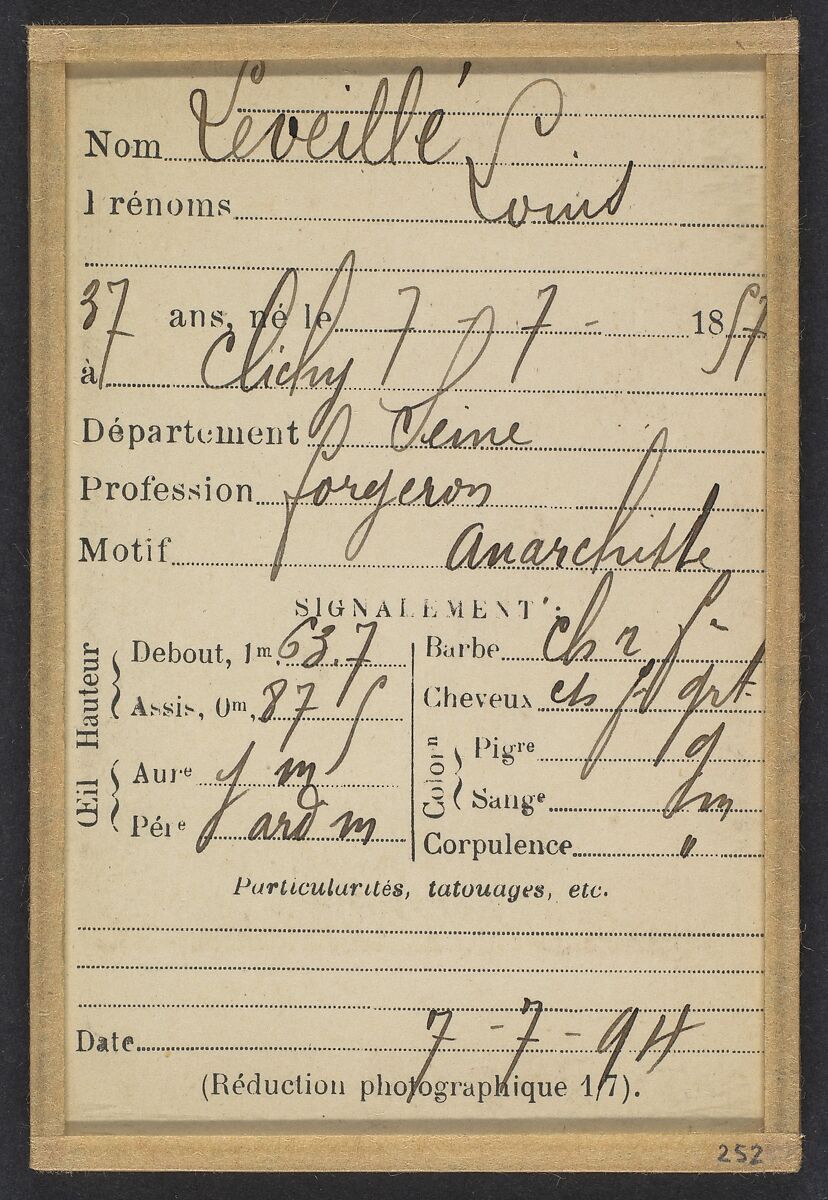 Nom Léveillé
Prénoms Louis
37 ans, né le 7 - 7 - 1857
à Clichy
Département Seine
Profession forgeron
Motif Anarchiste
SIGNALEMENT :
Hauteur
Debout, 1m, 63.7
Assis, 0m, 87
Œil
Aure j m
Pére ard m
Barbe ch r f -
Cheveux ch f grt
Coloron
Pigre g
Sange m
Corpulence "
Particularités, tatouages, etc.
Date 7 - 7 - 94
(Réduction photographique 1/7).
252